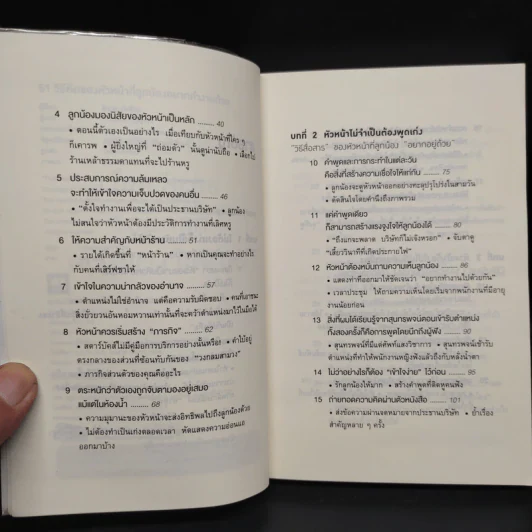 4 ลูกน้องมองนิสัยของหัวหน้าเป็นหลัก 40
• ตอนนี้ตัวเองเป็นอย่างไร เมื่อเทียบกับหัวหน้าที่ใคร ๆ
ก็เคารพ • ผู้ยิ่งใหญ่ที่ "ถ่อมตัว" นั้นดูน่านับถือ • เลือกไป
ร้านเหล้าธรรมดาแทนที่จะไปร้านหรู
5 ประสบการณ์ความล้มเหลว
จะทำให้เข้าใจความเจ็บปวดของคนอื่น 46
• "ตั้งใจทำงานเพื่อจะได้เป็นประธานบริษัท" • ลูกน้อง
ไม่สนใจว่าหัวหน้าต้องมีประวัติการทำงานที่เลิศหรู
6 ให้ความสำคัญกับหน้าร้าน 51
• รายได้เกิดขึ้นที่ "หน้าร้าน" • หากเป็นคุณจะทำอย่างไร
กับคนที่เสิร์ฟชาให้
7 เข้าใจในความน่ากลัวของอำนาจ 57
• ตำแหน่งไม่ใช่อำนาจ แต่คือความรับผิดชอบ • คนที่เอาชนะ
สิ่งยั่วยวนอันหอมหวานเท่านั้นที่จะรั้งตำแหน่งผู้นำไว้ในมือได้
8 หัวหน้าควรเริ่มสร้าง "ภารกิจ" 62
• สตาร์บัคส์ไม่มีคู่มือการบริการอย่างนั้นหรือ • คำไม่อยู่
ตรงกลางของส่วนที่ซ้อนทับกันของ "วงกลมสามวง"
• ภารกิจส่วนตัวของคุณคืออะไร
9 ตระหนักว่าตัวเองถูกจับตามองอยู่เสมอ
แม้แต่ในห้องน้ำ 68
• ความมุมานะของหัวหน้าจะส่งอิทธิพลไปถึงลูกน้องด้วย
• ไม่ต้องทำเป็นเก่งตลอดเวลา หัดแสดงความอ่อนแอ
ออกมาบ้าง
บทที่ 2 หัวหน้าไม่จำเป็นต้องพูดเก่ง
"วิธีสื่อสาร" ของหัวหน้าที่ลูกน้อง "อยากอยู่ด้วย"
10 คำพูดและการกระทำในแต่ละวัน
คือสิ่งที่สร้างความเชื่อใจให้แก่กัน 75
• ลูกน้องจะดูหัวหน้าออกอย่างทะลุปรุโปร่งในสามวัน
• ตัดสินใจโดยคำนึงถึงภาพรวม
11 แค่คำพูดเดียว
ก็สามารถสร้างแรงจูงใจให้ลูกน้องได้ 80
• "ถึงแกจะพลาด บริษัทก็ไม่เจ๊งหรอก" • จับตาดู
"เสี้ยววินาทีที่เกิดประกายไฟ"
12 หัวหน้าต้องหมั่นถามความเห็นลูกน้อง 86
• แสดงท่าทีออกมาให้ชัดเจนว่า "อยากทำงานไปด้วยกัน"
• เวลาประชุม ให้ถามความเห็นโดยเริ่มจากพนักงานที่มีอายุ
งานน้อยก่อน
13 สิ่งที่ผมได้เรียนรู้จากสุนทรพจน์ตอนเข้ารับตำแหน่ง
ทั้งสองครั้งก็คือการพูดโดยนึกถึงผู้ฟัง 90
• สุนทรพจน์ที่มีแต่ศัพท์แสงวิชาการ • สุนทรพจน์เข้ารับ
ตำแหน่งที่ทำให้พนักงานหญิงฟังแล้วถึงกับหลั่งน้ำตา
14 ไม่ว่าอย่างไรก็ต้อง "เข้าใจง่าย" ไว้ก่อน 95
• รักลูกน้องให้มาก • สร้างคำพูดที่ติดหูคนฟัง
15 ถ่ายทอดความคิดผ่านตัวหนังสือ 101
• ส่งข้อความผ่านจดหมายจากประธานบริษัท • ย้ำเรื่อง
สำคัญหลาย ๆ ครั้ง